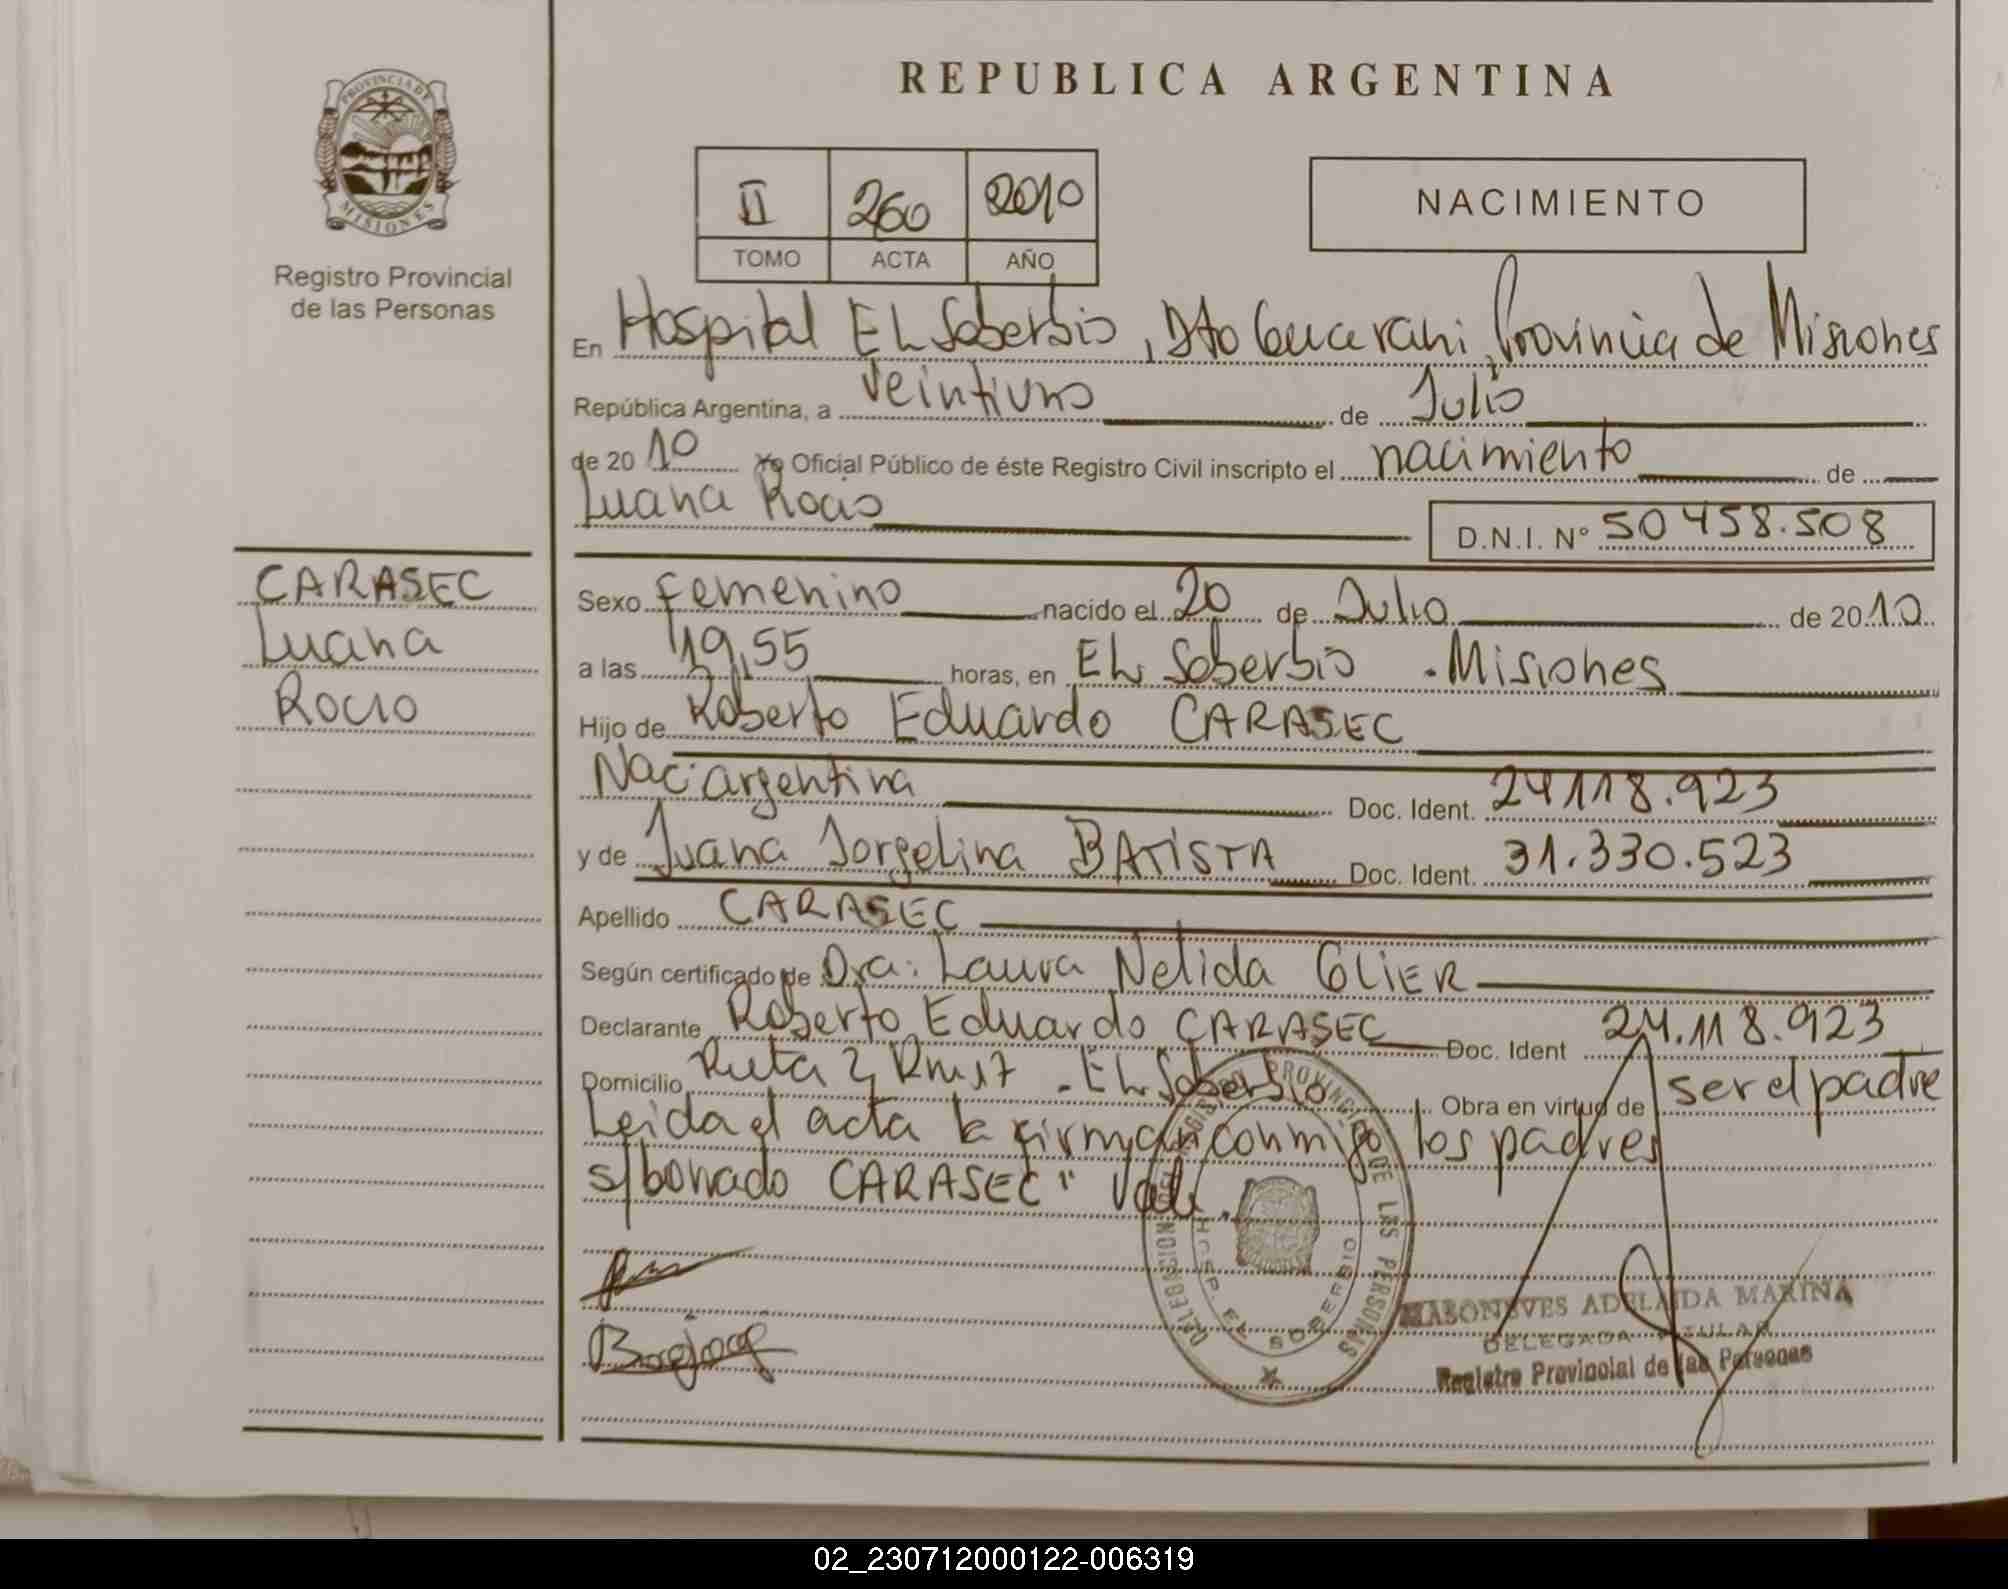 REPUBLICA ARGENTINA
PROVINCIA DE
MISIONES
Registro Provincial
de las Personas
II 260 2010
TOMO ACTA AÑO
NACIMIENTO
En Hospital EL Soberbio, Dto Guarani, Provincia de Misiones
República Argentina, a veintiuno de Julio
de 2010 Yo Oficial Público de éste Registro Civil inscripto el nacimiento de
Luana Rocio
D.N.I. Nº 50458.508
CARASEC
Luana
Rocio
Sexo Femenino nacido el 20 de Julio de 2010
a las 19,55 horas, en EL Soberbio - Misiones
Hijo de Roberto Eduardo CARASEC
Nac: argentina Doc. Ident. 24118.923
y de Juana Jorgelina BATISTA Doc. Ident. 31.330.523
Apellido CARASEC
Según certificado de Dra: Laura Nelida GLIER
Declarante Roberto Eduardo CARASEC Doc. Ident 24.118.923
Domicilio Ruta 2, Km17 - EL Soberbio Obra en virtud de ser el padre
Leida el acta la firman conmigo los padres
s/borrado CARASEC" Vale.
REGISTRO PROVINCIAL DE LAS PERSONAS
HOSP. EL SOBERBIO
ADELAIDA MARINA
DELEGADA TITULAR
Registro Provincial de las Personas
02_230712000122-006319